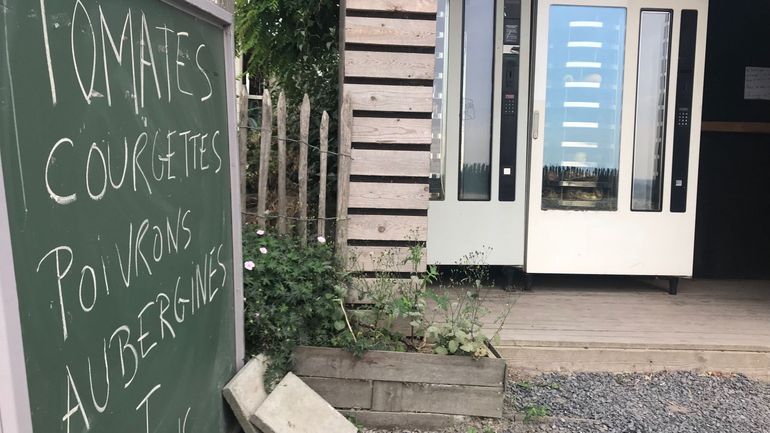 TOMATES
COURGETTES
POIVRONS
AUBERGINES